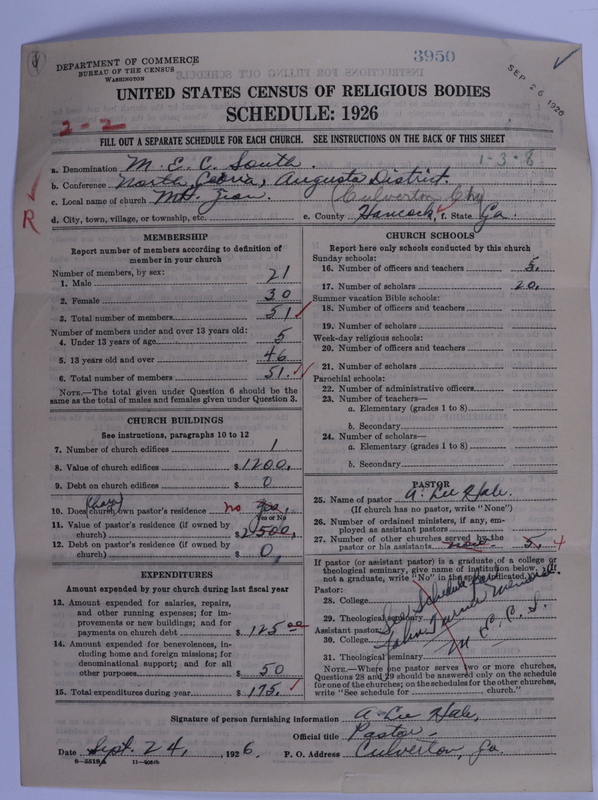 3950
DEPARTMENT OF COMMERCE
BUREAU OF THE CENSUS
WASHINGTON
SEP 26 1926
UNITED STATES CENSUS OF RELIGIOUS BODIES
SCHEDULE: 1926
2-2
FILL OUT A SEPARATE SCHEDULE FOR EACH CHURCH. SEE INSTRUCTIONS ON THE BACK OF THIS SHEET
1-3-8
a. Denomination M. E. C. South.
b. Conference North Georia, Augusta District.
c. Local name of church Mt. Zion. (Culverton Chg
d. City, town, village, or township, etc. e. County Hancock, f. State Ga.
R
MEMBERSHIP
Report number of members according to definition of
member in your church
Number of members, by sex:
1. Male 21
2. Female 30
3. Total number of members 51
Number of members under and over 13 years old:
4. Under 13 years of age 5
5. 13 years old and over 46
6. Total number of members 51.
NOTE.—The total given under Question 6 should be the
same as the total of males and females given under Question 3.
CHURCH BUILDINGS
See instructions, paragraphs 10 to 12
7. Number of church edifices 1
8. Value of church edifices $1200.
9. Debt on church edifices $ 0
(Charge)
10. Does church own pastor's residence no yes.
Yes or No
11. Value of pastor's residence (if owned by
church) $2500,
12. Debt on pastor's residence (if owned by
church) $ 0,
EXPENDITURES
Amount expended by your church during last fiscal year
13. Amount expended for salaries, repairs,
and other running expenses; for im-
provements or new buildings; and for
payments on church debt $ 125.00
14. Amount expended for benevolences, in-
cluding home and foreign missions; for
denominational support; and for all
other purposes $ 50
15. Total expenditures during year $ 175.
CHURCH SCHOOLS
Report here only schools conducted by this church
Sunday schools:
16. Number of officers and teachers 5.
17. Number of scholars 20.
Summer vacation Bible schools:
18. Number of officers and teachers
19. Number of scholars
Week-day religious schools:
20. Number of officers and teachers
21. Number of scholars
Parochial schools:
22. Number of administrative officers
23. Number of teachers—
a. Elementary (grades 1 to 8)
b. Secondary
24. Number of scholars—
a. Elementary (grades 1 to 8)
b. Secondary
PASTOR
25. Name of pastor A. Lee Hale.
(If church has no pastor, write "None")
26. Number of ordained ministers, if any, em-
ployed as assistant pastors
27. Number of other churches served by the
pastor or his assistants 5, 4
If pastor (or assistant pastor) is a graduate of a college or
theological seminary, give name of institution below. If
not a graduate, write "No" in the space indicated.
Pastor:
28. College
29. Theological seminary
Assistant pastor:
30. College
31. Theological seminary
See Schedule for
Memorial
M. E. C. S.
NOTE.—Where one pastor serves two or more churches,
Questions 28 and 29 should be answered only on the schedule
for one of the churches; on the schedules for the other churches,
write "See schedule for church."
Signature of person furnishing information A. Lee Hale,
Official title Pastor
Date Sept. 24, 1926. P. O. Address Culverton, Ga.